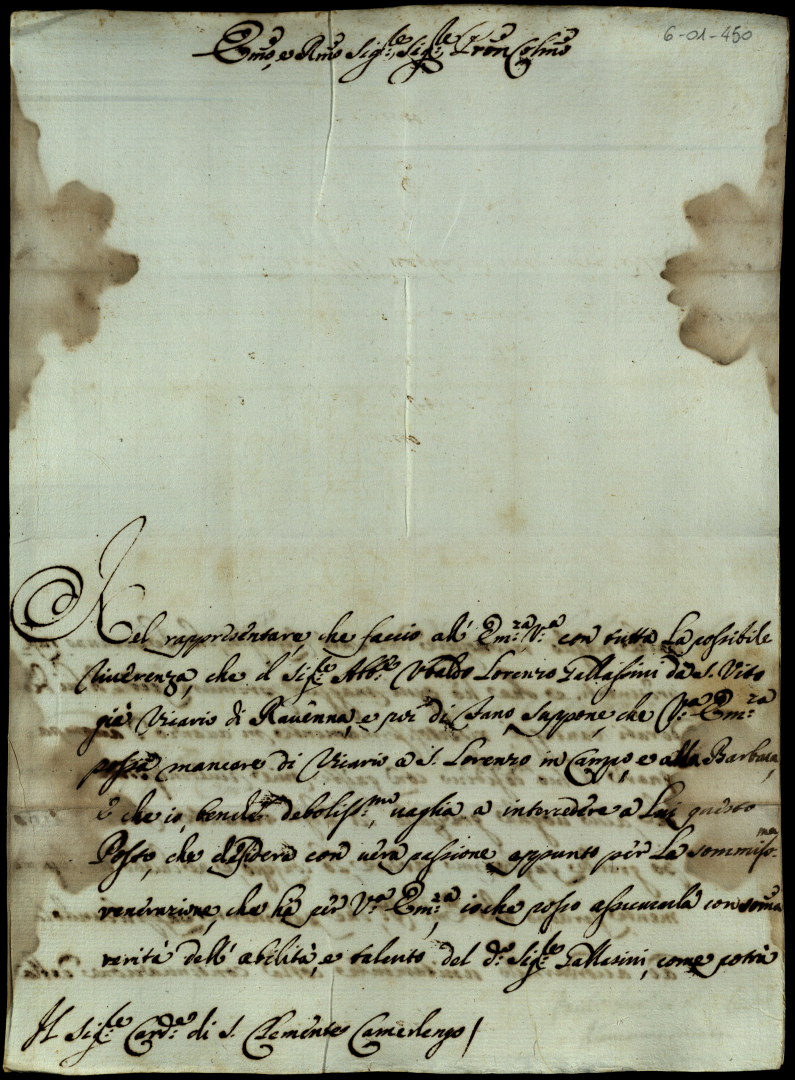 6-01-450
Emo, e Rmo Sig:le Sig:le Pron Colmo
Nel rappresentare, che faccio all' Em:za V:a con tutta la possibile
riverenza, che il Sig:le Abb:e Ubaldo Lorenzo Gallassini da S. Vito
già Vicario di Ravenna, e poi di Fano, suppone, che V:a Em:za
possa mancare di Vicario a S. Lorenzo in Campo, e alla Barbara,
e che io, benche deboliss:mo, vaglia a intercedere a Lui questo
Posto, che desidera con vera passione appunto per la sommiss:ma
venerazione, che hà per V:a Em:za, io che posso assicurarla con soma
verità dell' abilità, e talento del d:o Sig:le Gallasini, come potrà
Il Sig:le Card:e di S. Clemente Camerlengo /